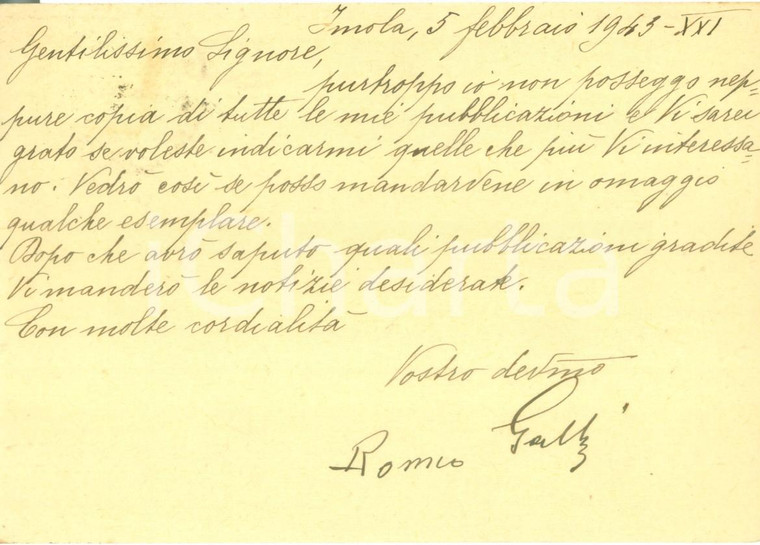 Imola, 5 febbraio 1943-XXI
Gentilissimo Signore,
purtroppo io non posseggo nep-
pure copia di tutte le mie pubblicazioni e Vi sarei
grato se voleste indicarmi quelle che più Vi interessa-
no. Vedrò così se posso mandarvene in omaggio
qualche esemplare.
Dopo che avrò saputo quali pubblicazioni gradite
Vi manderò le notizie desiderate.
Con molte cordialità
Vostro dev.mo
Romeo Galli